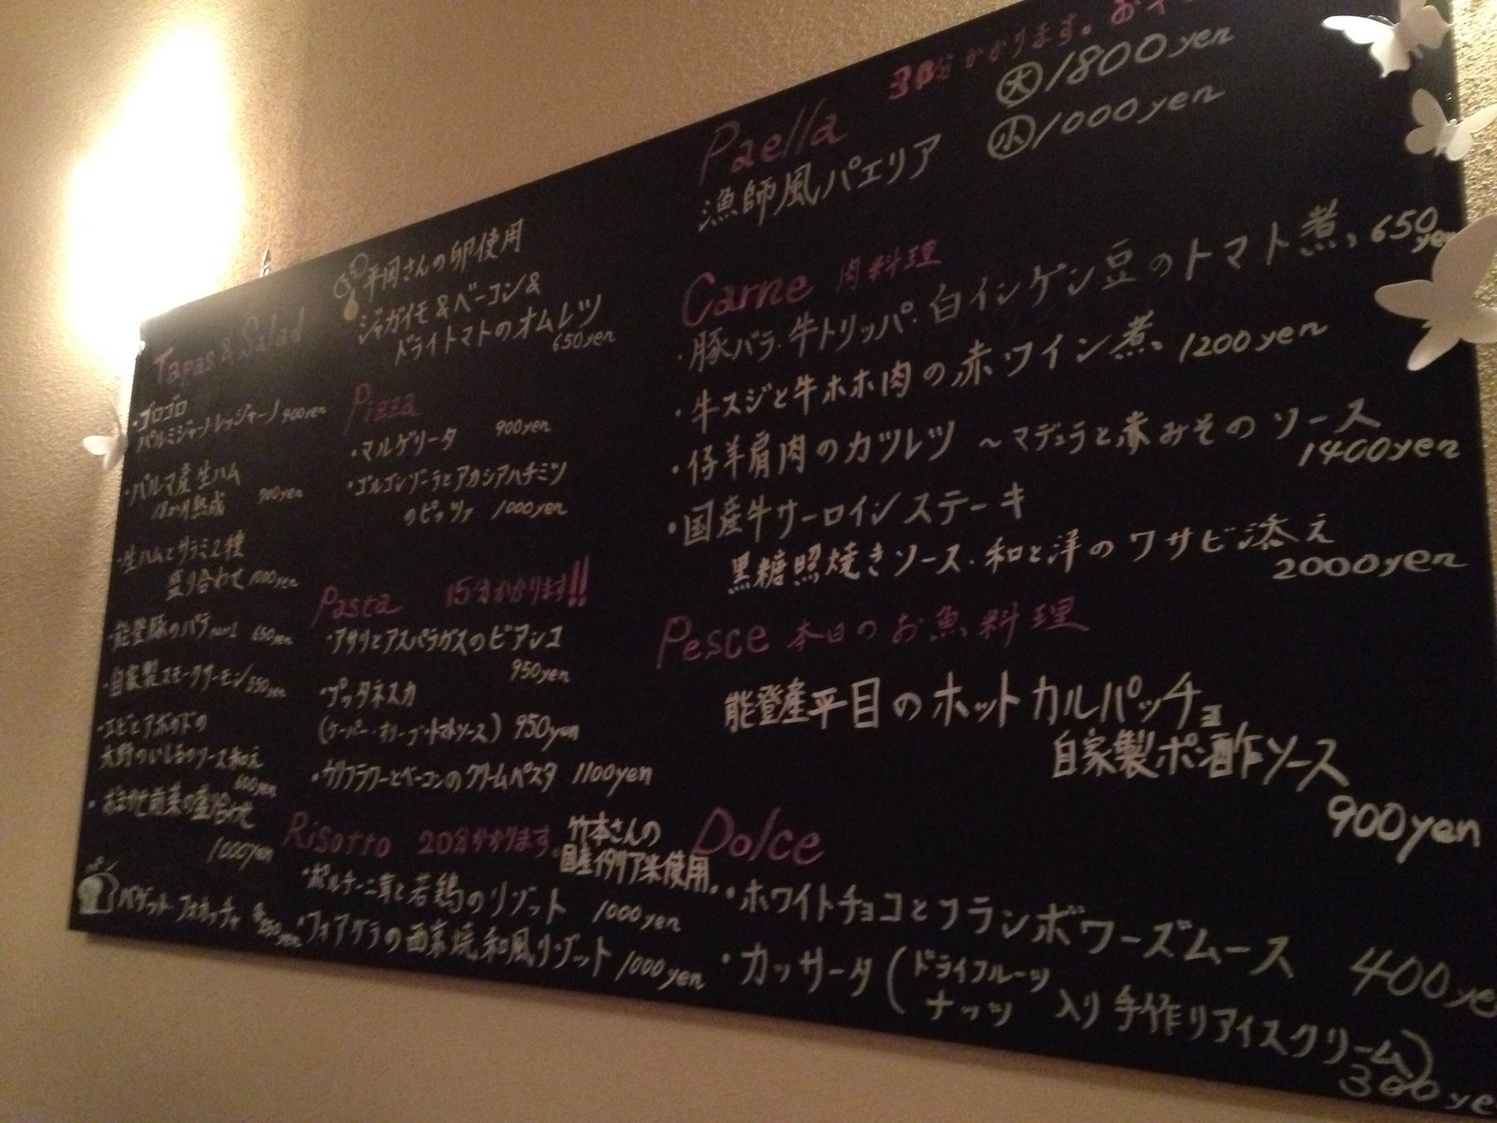 Tapas & Salad
・ゴロゴロ
パルミジャーノレッジャーノ 900yen
・パルマ産生ハム
18か月熟成 900yen
・生ハムとサラミ2種
盛り合わせ 1000yen
・能登豚のパテ 650yen
・自家製スモークサーモン 550yen
・エビとアボカドの
大野のいしるのソース和え
600yen
・おまかせ前菜の盛り合わせ
1000yen
バゲット フォカッチャ
平岡さんの卵使用
ジャガイモ&ベーコン&
ドライトマトのオムレツ
650yen
Pizza
・マルゲリータ 900yen
・ゴルゴンゾーラとアカシアハチミツ
のピッツァ 1000yen
Pasta 15分かかります!!
・アサリとアスパラガスのビアンコ
950yen
・プッタネスカ
(ケーパー・オリーブ・トマトソース) 950yen
・カリフラワーとベーコンのクリームパスタ 1100yen
Risotto 20分かかります。
竹本さんの
国産イタリア米使用。
・ポルチーニ茸と若鶏のリゾット 1000yen
・フォアグラの西京焼 和風リゾット 1000yen
Paella 30分かかります。
漁師風パエリア
大 1800yen
小 1000yen
Carne 肉料理
・豚バラ・牛トリッパ・白インゲン豆のトマト煮、650yen
・牛スジと牛ホホ肉の赤ワイン煮、1200yen
・仔羊肩肉のカツレツ ～マデュラと赤みそのソース
1400yen
・国産牛サーロインステーキ
黒糖照焼きソース・和と洋のワサビ添え
2000yen
Pesce 本日のお魚料理
能登産平目のホットカルパッチョ
自家製ポン酢ソース
900yen
Dolce
・ホワイトチョコとフランボワーズムース 400ye
・カッサータ(ドライフルーツ
ナッツ 入り 手作りアイスクリーム)
300ye